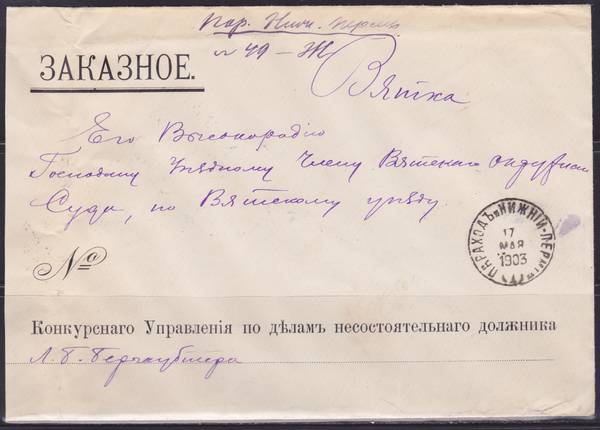 Пар. Нижн. Пермь
№ 49 – Ж
ЗАКАЗНОЕ.
Вятка
Его Высокородію
Господину Уѣздному Члену Вятскаго Окружн
Суда, по Вятскому уѣзду.
ПАРАХОДЪ НИЖНІЙ-ПЕРМЬ
17
МАЯ
1903
№
Конкурснаго Управленія по дѣламъ несостоятельнаго должника
Л. Б.